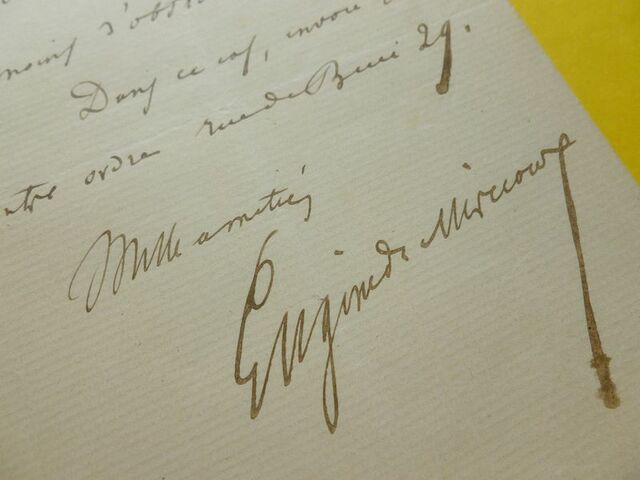 moins s'obst
Dans ce cas, envoie
ntre ordre rue de Buci 29.
Mille amitiés
Eugène de Mirecourt